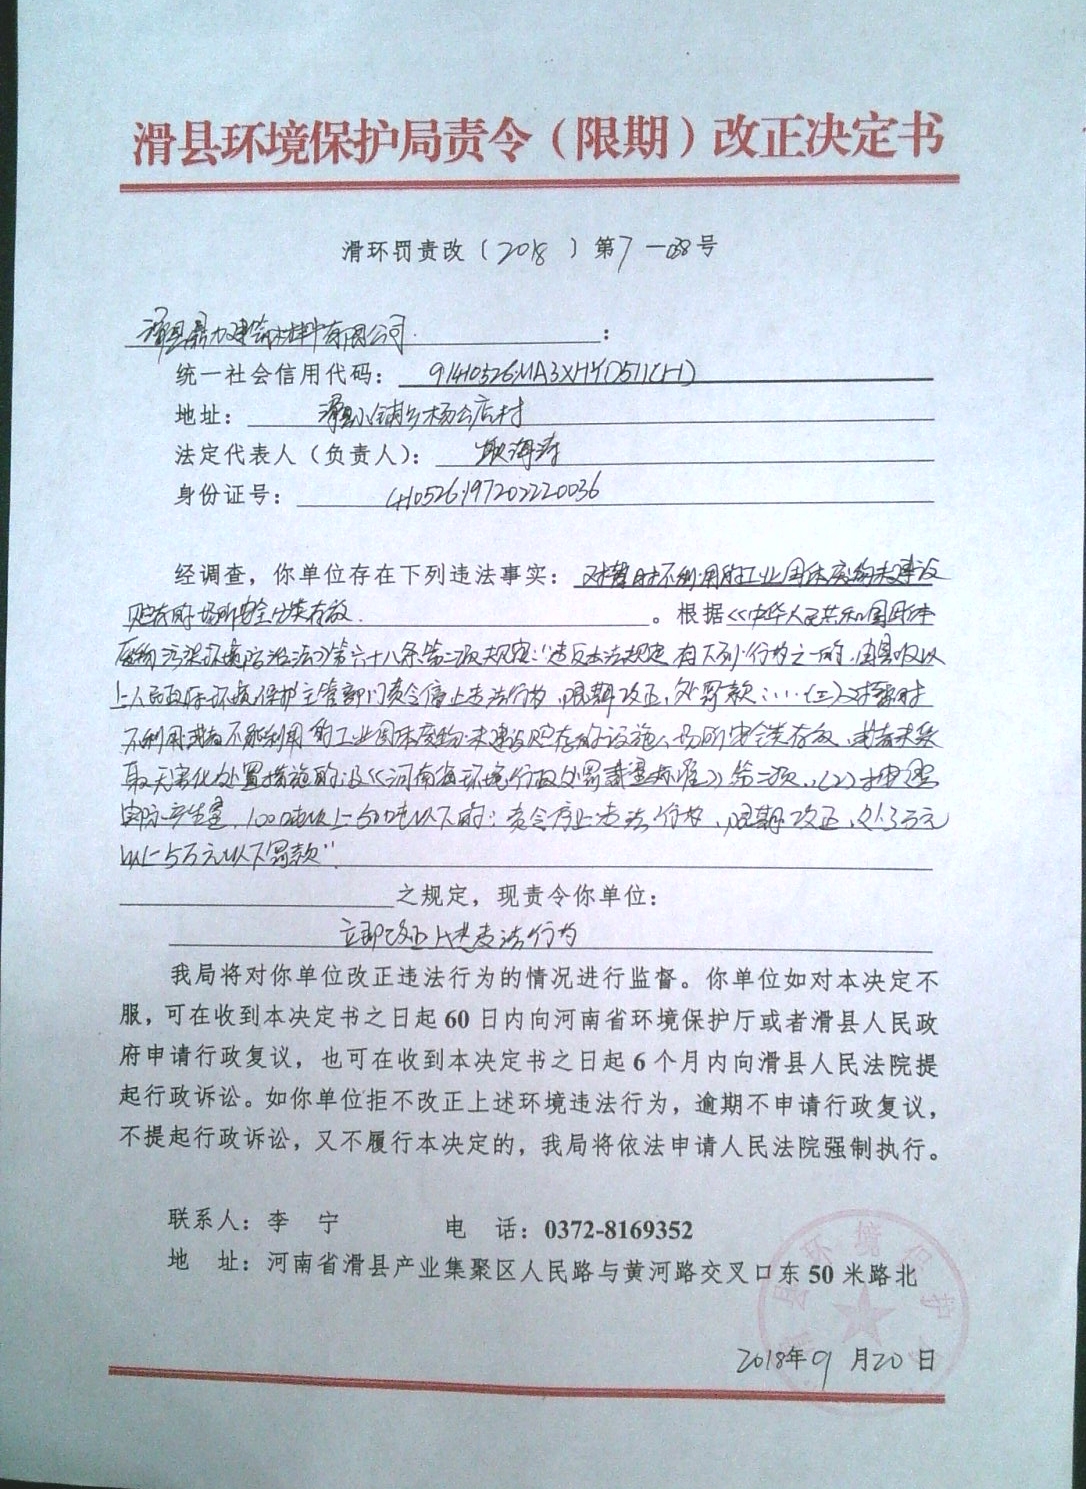 滑县环境保护局责令（限期）改正决定书
滑环罚责改（2018）第7-038号
滑县鼎力建筑材料有限公司：
统一社会信用代码：91410526MA3XHYD511(H)
地址：滑县小铺乡杨公店村
法定代表人（负责人）：海涛
身份证号：410526197202220036
经调查，你单位存在下列违法事实：对暂时不利用的工业固体废物未建设
贮存的场所安全分类存放。根据《中华人民共和国固体
废物污染环境防治法》第六十八条第二项规定："违反本法规定，有下列行为之一的，由县级以
上人民政府环境保护主管部门责令停止违法行为，限期改正，处罚款：…(二)对暂时
不利用或者不能利用的工业固体废物未建设贮存的设施、场所安全分类存放，或者未采
取无害化处置措施的"及《河南省环境行政处罚裁量标准》第二项，(2)
实际产生量，100吨以上500吨以下的；责令停止违法行为，限期改正，处3万元
以上5万元以下罚款"
之规定，现责令你单位：
立即改正上述违法行为
我局将对你单位改正违法行为的情况进行监督。你单位如对本决定不
服，可在收到本决定书之日起60日内向河南省环境保护厅或者滑县人民政
府申请行政复议，也可在收到本决定书之日起6个月内向滑县人民法院提
起行政诉讼。如你单位拒不改正上述环境违法行为，逾期不申请行政复议，
不提起行政诉讼，又不履行本决定的，我局将依法申请人民法院强制执行。
联系人：李 宁 电 话：0372-8169352
地 址：河南省滑县产业集聚区人民路与黄河路交叉口东50米路北
县环境保护
2018年9月20日